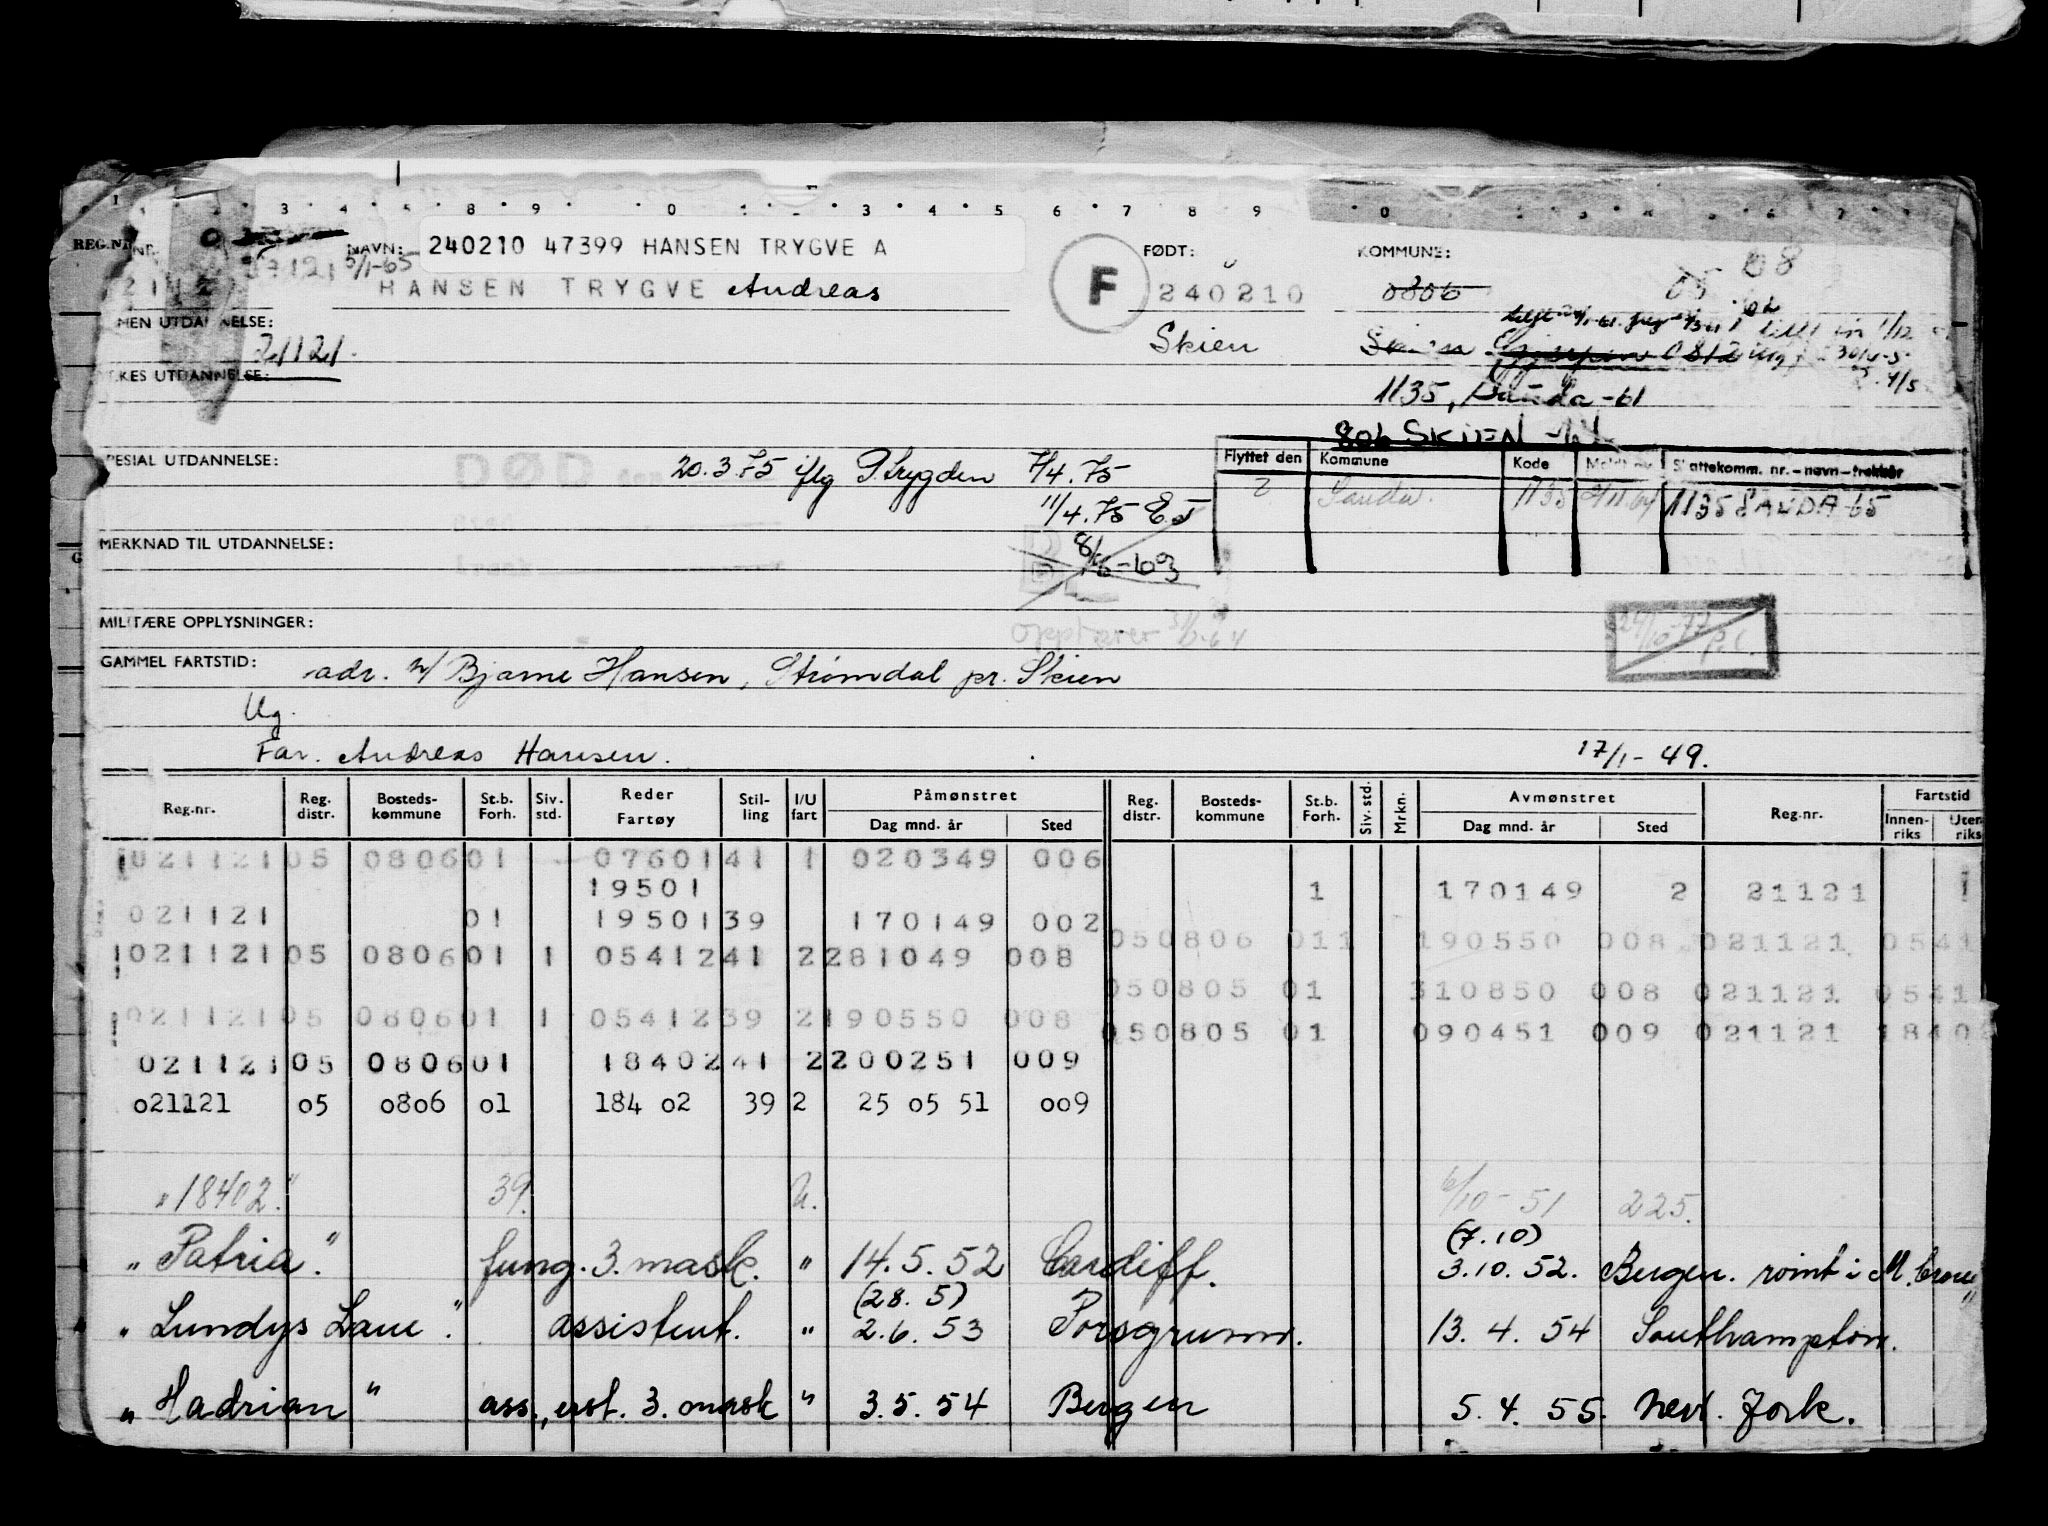 3 4 8 9 0 3 4 5 6 7 8 9 0
REG.NR. NAVN: 240210 47399 HANSEN TRYGVE A FØDT: KOMMUNE: 08
5/1-65
HANSEN TRYGVE Andreas F 240210 0806 05
21121. Skien Skien 0812
1135, Sanda -61
806 SKIEN
SPESIAL UTDANNELSE: DØD 20.3.75 iflg Trygden 7/4.75
Flyttet den Kommune Kode Meldt Skattekomm. nr. - navn - trekkår
2 Sanda. 1135 1135 SANDA -65
11/4.75 EJ
MERKNAD TIL UTDANNELSE:
MILITÆRE OPPLYSNINGER:
GAMMEL FARTSTID: adr. v/ Bjarne Hansen, Strømdal pr. Skien
Ug.
Far. Andreas Hansen. 17/1-49.
Reg.nr. Reg. distr. Bosteds-kommune St.b. Forh. Siv. std. Reder Fartøy Stil-ling I/U fart Påmønstret Dag mnd. år Sted Reg. distr. Bosteds-kommune St.b. Forh. Siv. std. Mrkn. Avmønstret Dag mnd. år Sted Reg.nr. Fartstid Innen-riks Uten-riks
021121 05 0806 01 07601 41 1 020349 006
19501 1 170149 2 21121 1
021121 01 19501 39 170149 002
05 0806 01 1 190550 008 021121 0541
021121 05 0806 01 1 05412 41 2 281049 008
05 0805 01 310850 008 021121 0541
021121 05 0806 01 1 05412 39 2 190550 008
05 0805 01 090451 009 021121 18402
021121 05 0806 01 18402 41 2 200251 009
021121 05 0806 01 184 02 39 2 25 05 51 009
"18402." 39. U. 6/10-51 225.
(7.10)
"Patria". fung. 3. mask. " 14.5.52 Cardiff. 3.10.52. Bergen. rømt i M. Crone
(28.5)
"Lundys Lane". assistent. " 2.6.53 Porsgrunn. 13.4.54 Southampton.
"Hadrian" ass., erst. 3. mask " 3.5.54 Bergen 5.4.55. New. York.